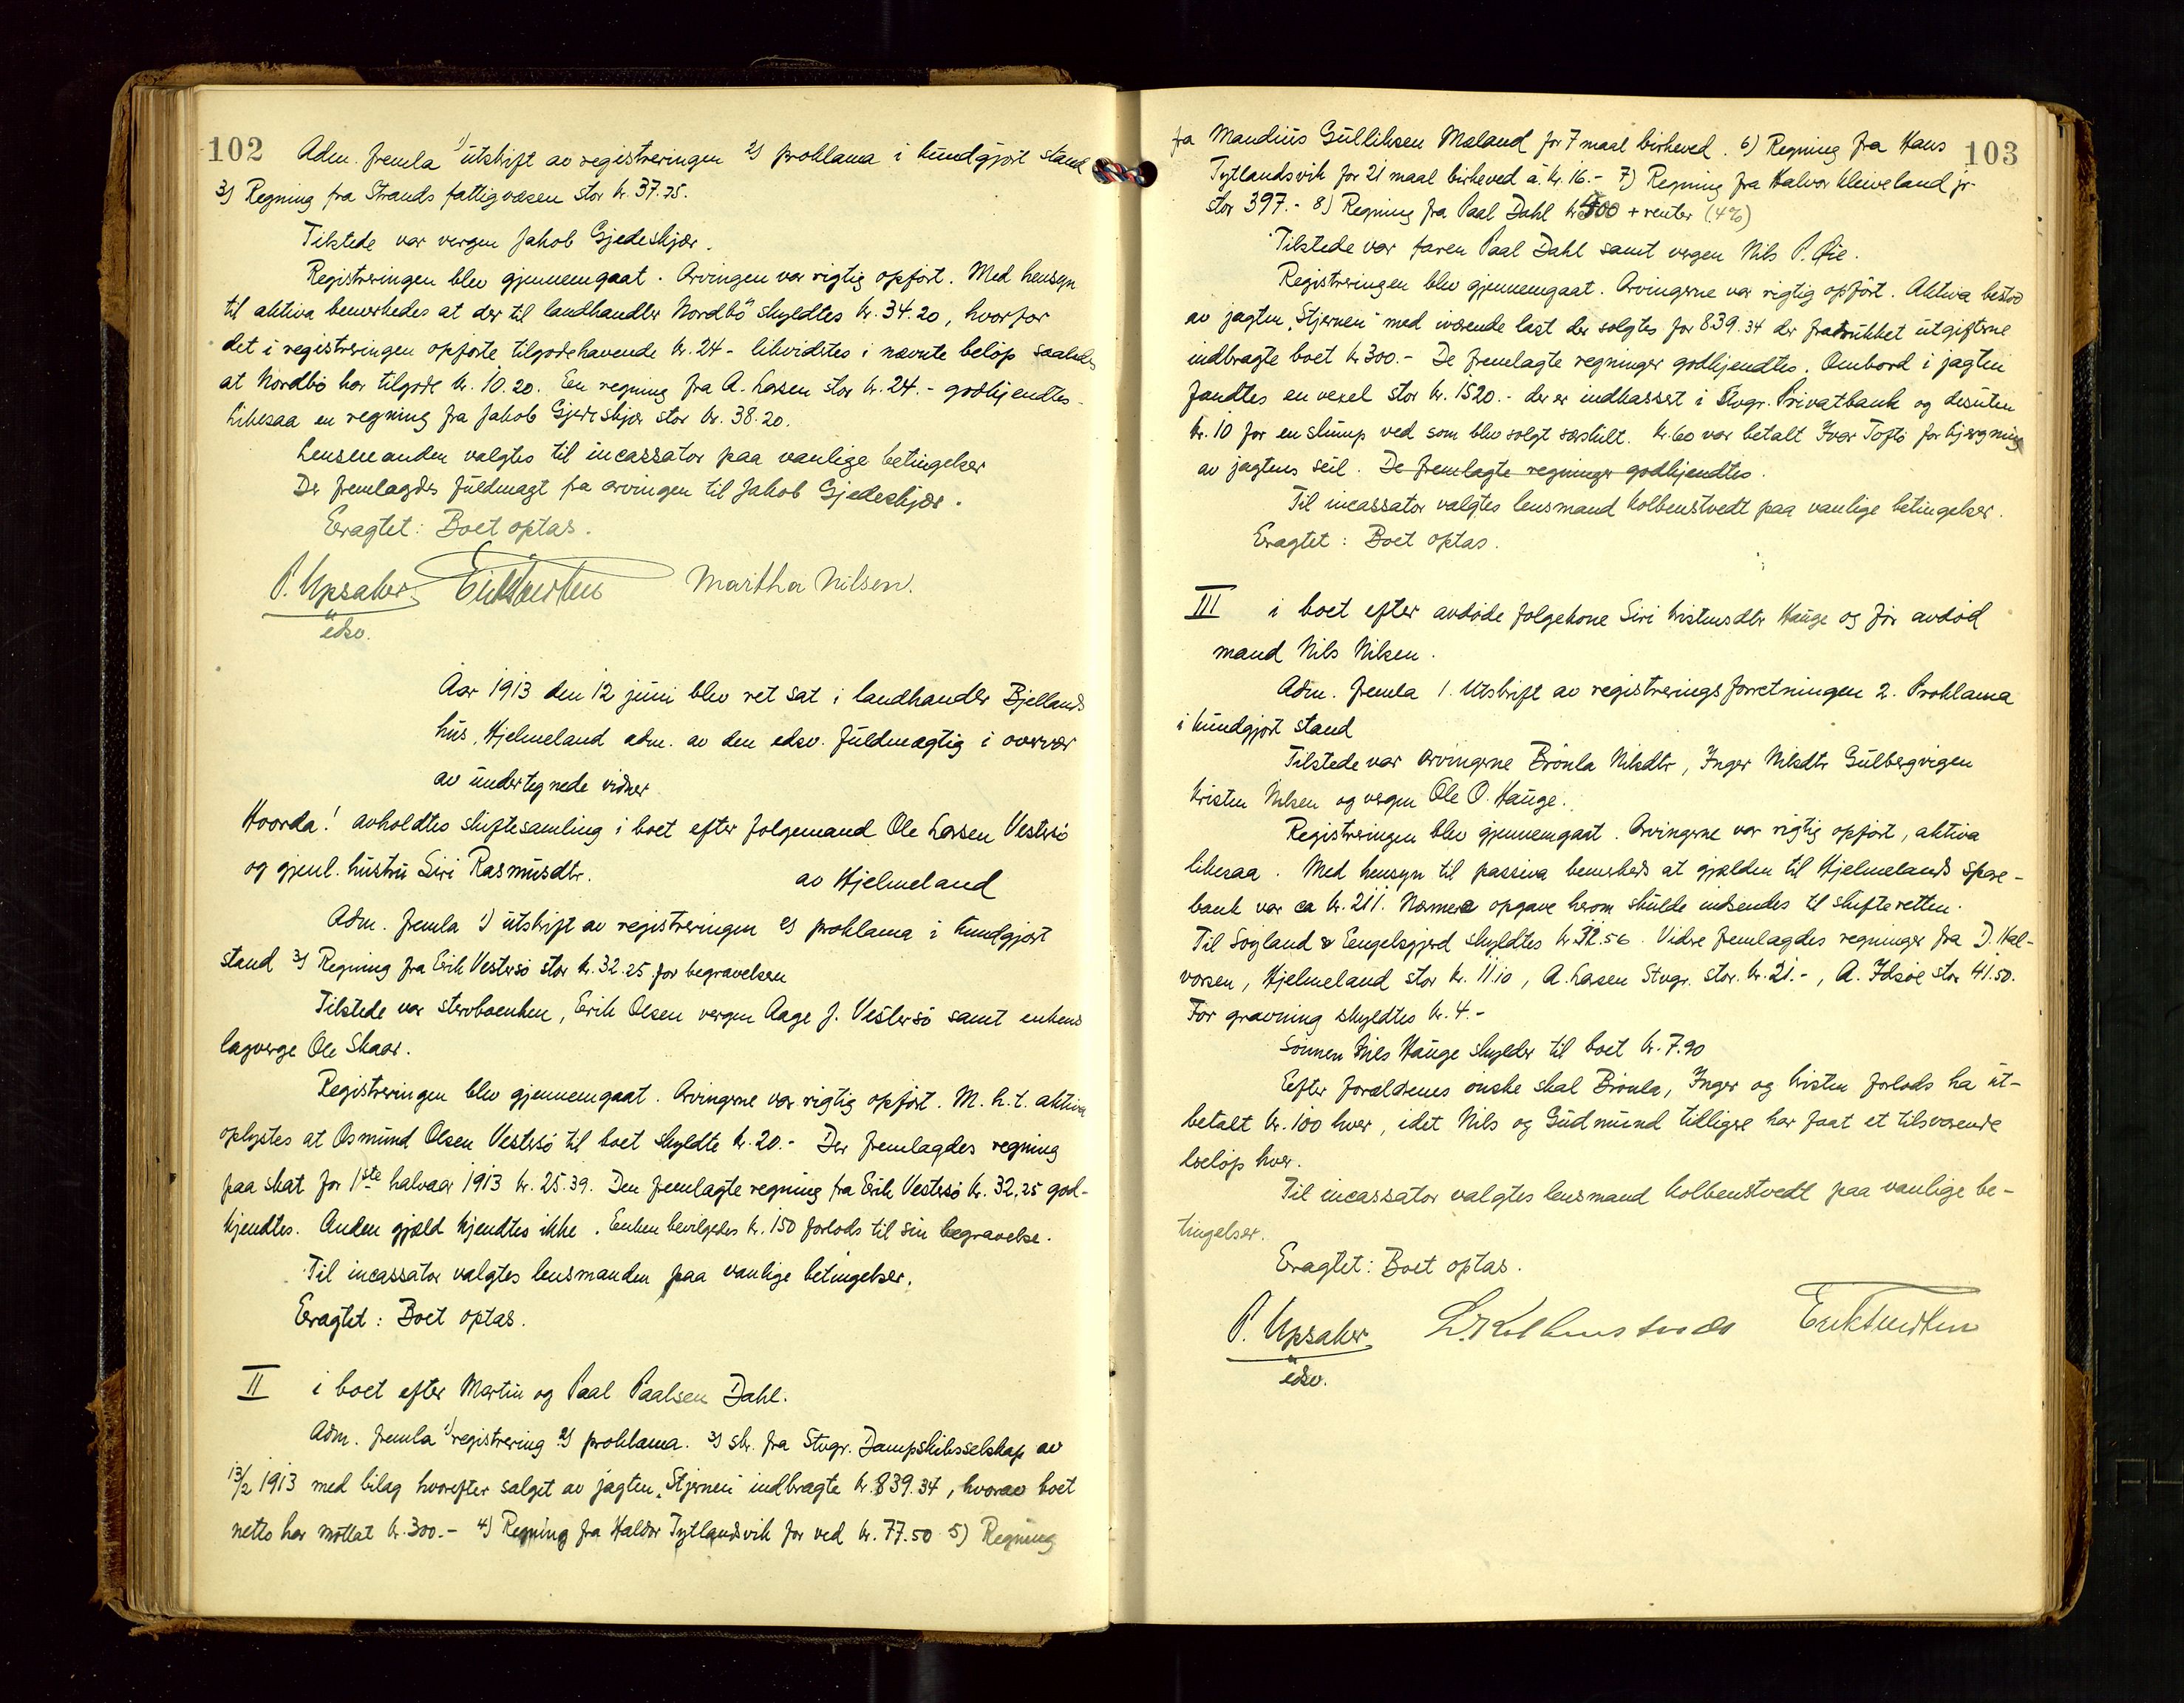 102
Adm. fremla 1) utskrift av registreringen 2) proklama i kundgjort stand
3) Regning fra Strands fattigvæsen stor kr. 37.75.
Tilstede var vergen Jakob Gjedeskjær.
Registreringen blev gjennemgaat. Arvingen var rigtig opført. Med hensyn
til aktiva bemerkedes at der til landhandler Nordbø skyldtes kr. 34.20, hvorfor
det i registreringen opførte tilgodehavende kr. 24- likvidertes i nævnte beløp saaledes
at Nordbø har tilgode kr. 10.20. En regning fra A. Larsen stor kr. 24.- godkjendtes-
Likesaa en regning fra Jakob Gjedeskjær stor kr. 38.20.
Lensmanden valgtes til incassator paa vanlige betingelser
Der fremlagdes fuldmagt fra arvingen til Jakob Gjedeskjær.
Eragtet: Boet optas.
P. Upsaker Martha Nilsen.
edsv.
Aar 1913 den 12 juni blev ret sat i landhandler Bjellands
hus, Hjelmeland adm. av den edsv. fuldmægtig i overvær
av undertegnede vidner
Hvorda! avholdtes skiftesamling i boet efter følgemand Ole Larsen Vestersø
og gjenl. hustru Siri Rasmusdtr. av Hjelmeland
Adm. fremla 1) utskrift av registreringen 2) proklama i kundgjort
stand 3) Regning fra Erik Vestersø stor kr. 32.25 for begravelsen
Tilstede var stervboenken, Erik Olsen vergen Aage J. Vestersø samt enkens
lagverge Ole Skaar.
Registreringen blev gjennemgaat. Arvingerne var rigtig opført. M. h. t. aktiva
oplystes at Osmund Olsen Vestersø til boet skyldte kr. 20.- Der fremlagdes regning
paa skat for 1ste halvaar 1913 kr. 25.39. Den fremlagte regning fra Erik Vestersø kr. 32,25 god-
kjendtes. Anden gjæld kjendtes ikke. Enken bevilgedes kr. 150 forlods til sin begravelse.
Til incassator valgtes lensmanden paa vanlige betingelser.
Eragtet: Boet optas.
II i boet efter Martin og Paal Paalsen Dahl.
Adm. fremla 1) registrering 2) proklama. 3) skr. fra Stvgr. Dampskibsselskap av
13/2 1913 med bilag hvorefter salget av jagten "Stjernen" indbragte kr. 839.34, hvorav boet
netto har mottat kr. 300.- 4) Regning fra Haldor Tytlandsvik for ved kr. 77.50 5) Regning
103
fra Mandius Gulliksen Mæland for 7 maal birkeved. 6) Regning fra Hans
Tytlandsvik for 21 maal birkeved á kr. 16.- 7) Regning fra Halvor Kleiveland jr.
stor 397.- 8) Regning fra Paal Dahl kr 500 + renter (4%)
Tilstede var faren Paal Dahl samt vergen Nils P. Øie.
Registreringen blev gjennemgaat. Arvingerne var rigtig opført. Aktiva bestod
av jagten "Stjernen" med iværende last der solgtes for 839.34 der fratrukket utgifterne
indbragte boet kr 300.- De fremlagte regninger godkjendtes. Ombord i jagten
fandtes en vexel stor kr. 1520.- der er indkasset i Stvgr. Privatbank og desuten
kr. 10 for en slump ved som blev solgt særskilt. Kr. 60 var betalt Ivar Toftø for bjergning
av jagtens seil. De fremlagte regninger godkjendtes.
Til incassator valgtes lensmand Kolbenstvedt paa vanlige betingelser.
Eragtet: Boet optas.
III i boet efter avdøde følgekone Siri Kristensdtr Hauge og før avdød
mand Nils Nilsen.
Adm. fremla 1. Utskrift av registreringsforretningen 2. Proklama
i kundgjort stand
Tilstede var arvingerne Brønla Nilsdtr, Inger Nilsdtr Gulbergvigen
Kristen Nilsen og vergen Ole O. Hauge.
Registreringen blev gjennemgaat. Arvingerne var rigtig opført, aktiva
likesaa. Med hensyn til passiva bemerkeds at gjælden til Hjelmelands Spare-
bank var ca kr. 211. Nærmere opgave herom skulde indsendes til skifteretten.
Til Søyland & Eengelsgjerd skyldtes kr. 32.56. Videre fremlagdes regninger fra D. Hal-
vorsen, Hjelmeland stor kr. 11.10, A. Larsen Stvgr. stor. kr. 21.-, A. Idsøe stor 41.50.
For gravning skyldtes kr. 4.-
Sønnen Nils Hauge skylder til boet kr. 7.90
Efter forældrenes ønske skal Brønla, Inger og Kristen forlods ha ut-
betalt kr. 100 hver, idet Nils og Gudmund tidligere har faat et tilsvarende
beløp hver.
Til incassator valgtes lensmand Kolbenstvedt paa vanlige be-
tingelser.
Eragtet: Boet optas.
P. Upsaker L. Kolbenstvedt
edsv.